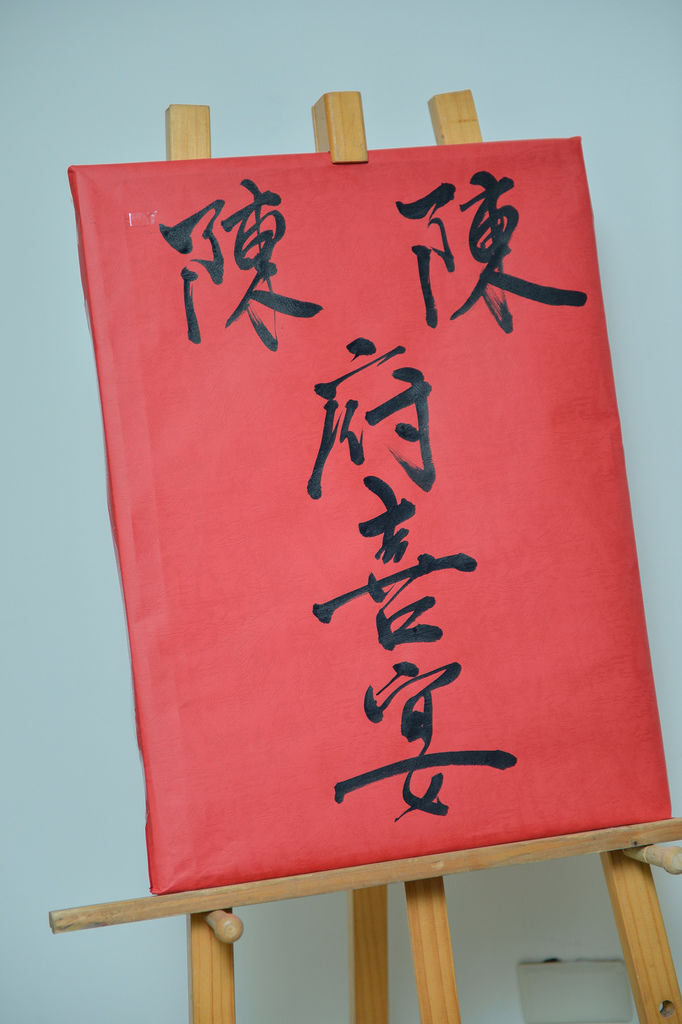 陳 陳
府
喜
宴